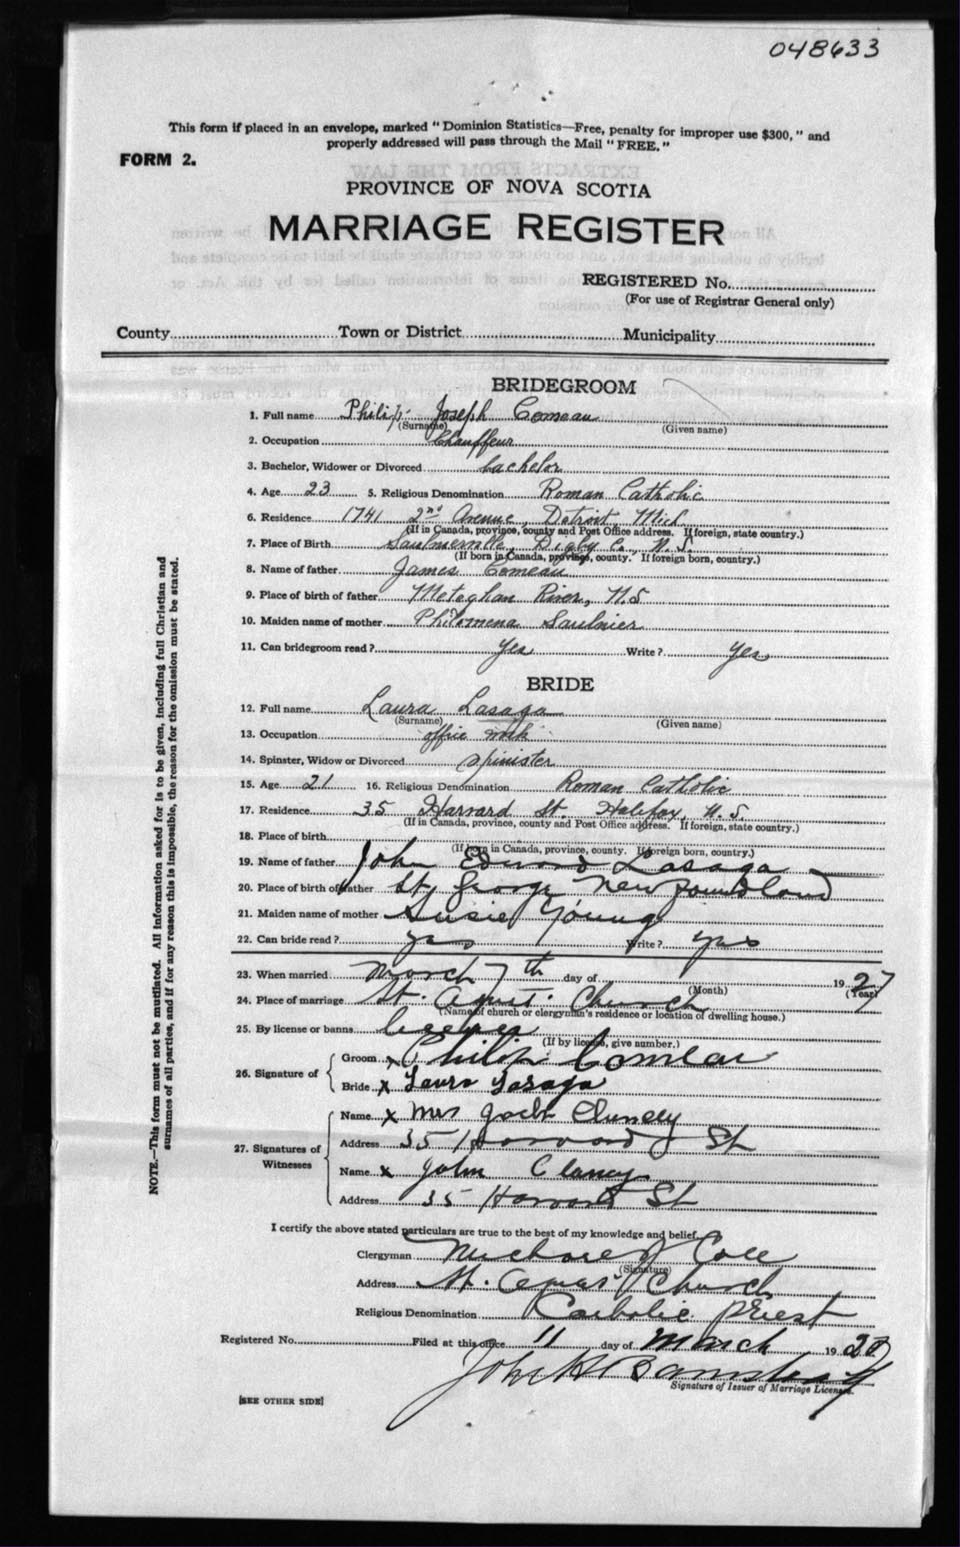 048633
This form if placed in an envelope, marked "Dominion Statistics—Free, penalty for improper use $300," and
properly addressed will pass through the Mail "FREE."
FORM 2.
PROVINCE OF NOVA SCOTIA
MARRIAGE REGISTER
REGISTERED No.
(For use of Registrar General only)
County Town or District Municipality
BRIDEGROOM
1. Full name Philip Joseph Comeau
(Surname) (Given name)
2. Occupation Chauffeur
3. Bachelor, Widower or Divorced bachelor
4. Age 23 5. Religious Denomination Roman Catholic
6. Residence 1741 2nd Avenue, Detroit, Mich
(If in Canada, province, county and Post Office address. If foreign, state country.)
7. Place of Birth Saulnierville, Digby C., N.S.
(If born in Canada, province, county. If foreign born, country.)
8. Name of father James Comeau
9. Place of birth of father Meteghan River, N.S
10. Maiden name of mother Philomena Saulnier
11. Can bridegroom read? Yes Write? Yes
BRIDE
12. Full name Laura Lasaga
(Surname) (Given name)
13. Occupation office work
14. Spinster, Widow or Divorced spinister
15. Age 21 16. Religious Denomination Roman Catholic
17. Residence 35 Harvard St. Halifax, N.S.
(If in Canada, province, county and Post Office address. If foreign, state country.)
18. Place of birth
(If born in Canada, province, county. If foreign born, country.)
19. Name of father John Edward Lasaga
20. Place of birth of father St George Newfoundland
21. Maiden name of mother Susie Young
22. Can bride read? yes Write? yes
23. When married March 7th day of 1927
(Month) (Year)
24. Place of marriage St. Church
(Name of church or clergyman's residence or location of dwelling house.)
25. By license or banns license
(If by license, give number.)
26. Signature of
Groom x Philip Comeau
Bride x Laura Lasaga
27. Signatures of Witnesses
Name x Mrs John Clancy
Address 35 Harvard St
Name x John Clancy
Address 35 Harvard St
I certify the above stated particulars are true to the best of my knowledge and belief.
Clergyman Michael J Cole
(Signature)
Address St. Church
Religious Denomination Catholic Priest
Registered No. Filed at this office 11 day of March 1927
John H Barnstead
Signature of Issuer of Marriage Licenses.
[SEE OTHER SIDE]
NOTE.—This form must not be mutilated. All information asked for is to be given, including full Christian and
surnames of all parties, and if for any reason this is impossible, the reason for the omission must be stated.